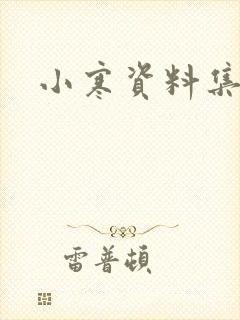 小寒資料集
雷普頓